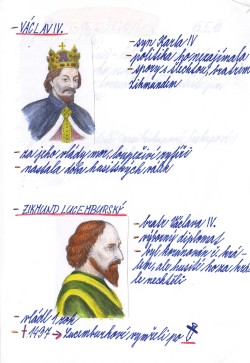 - VÁCLAV IV.
- syn Karla IV
- politika ho nezajímala
- spory s šlechtou, bratrem
Zikmundem
- za jeho vlády mor, loupeživí rytíři
- nastala doba husitských válek
- ZIKMUND LUCEMBURSKÝ
- bratr Václava IV.
- výborný diplomat
- byl korunován i krá-
lem, ale husité ho za krále
nechtěli
- vládl 1 rok
- † 1437 → Lucemburkové vymřeli po